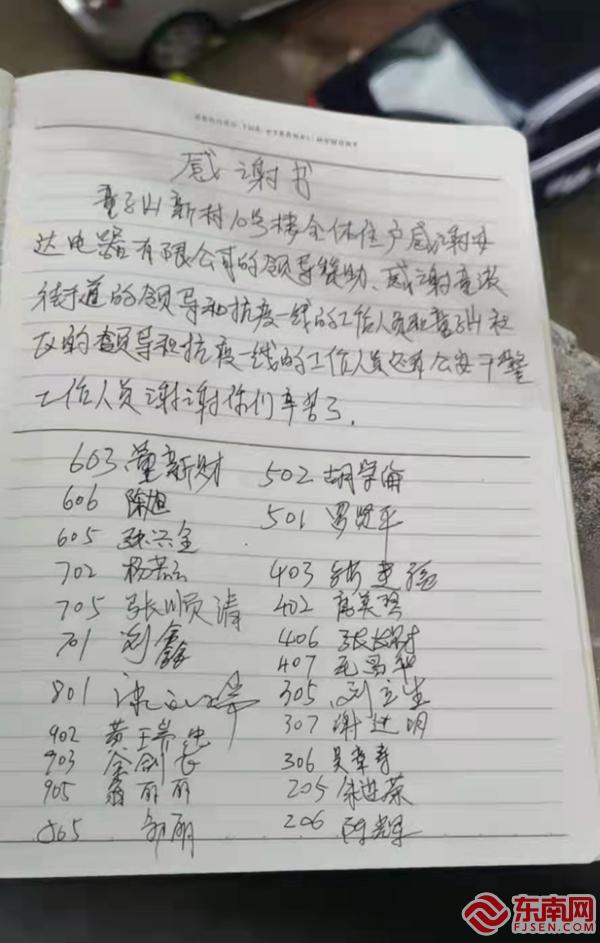 RECORD THE ETERNAL MEMORY
感谢书
童子山新村10号楼全体住户感谢安
达电器有限公司的领导援助、感谢童游
街道的领导和抗疫一线的工作人员和童子山社
区的领导和抗疫一线的工作人员还有公安干警
工作人员谢谢你们辛苦了.
603 董新财 502 胡学海
606 陈旭 501 罗贤平
605 张兴全
702 杨 403
705 张顺清 402 英
701 刘鑫 406 张长财
407 昌华
801 305 刘立生
902 黄王 307 谢达明
903 金剑长 306 吴章寿
905 翁丽丽 205 朱进荣
805 邹丽 206 陈辉
东南网
FJSEN.COM